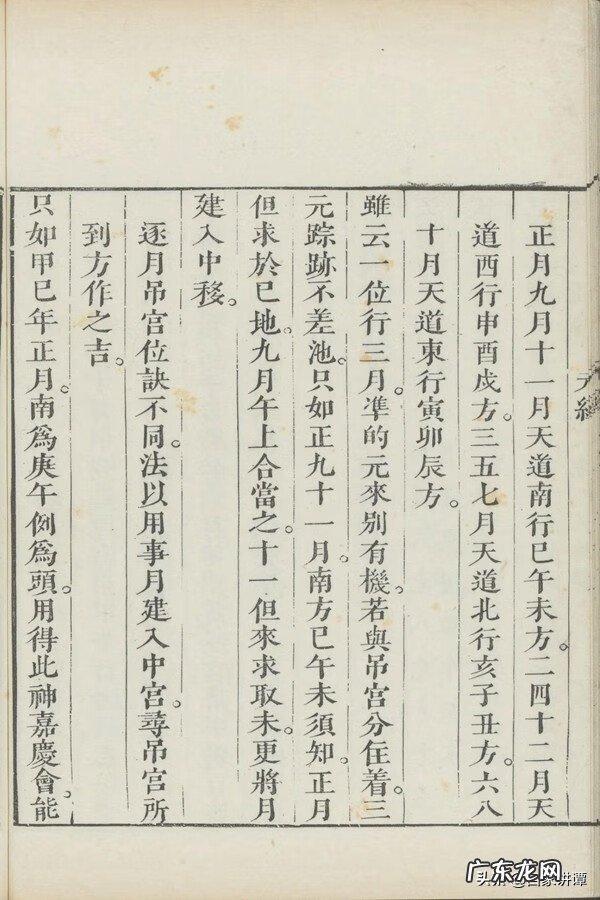 元經
正月九月十一月天道南行巳午未方。二四十二月天
道西行申酉戌方。三五七月天道北行亥子丑方。六八
十月天道東行寅卯辰方。
雖云一位行三月。凖的元來別有機。若與吊宮分隹着。三
元踪跡不差池。只如正九十一月。南方巳午未須知。正月
但求於巳地。九月午上合當之。十一但來求取未。更將月
建入中移。
逐月吊宮位訣不同。法以用事月建入中宮。尋吊宮所
到方作之吉。
只如甲巳年正月。南爲庚午例爲頭。用得此神嘉慶會。能
广东龙网
头条@百家讲谭